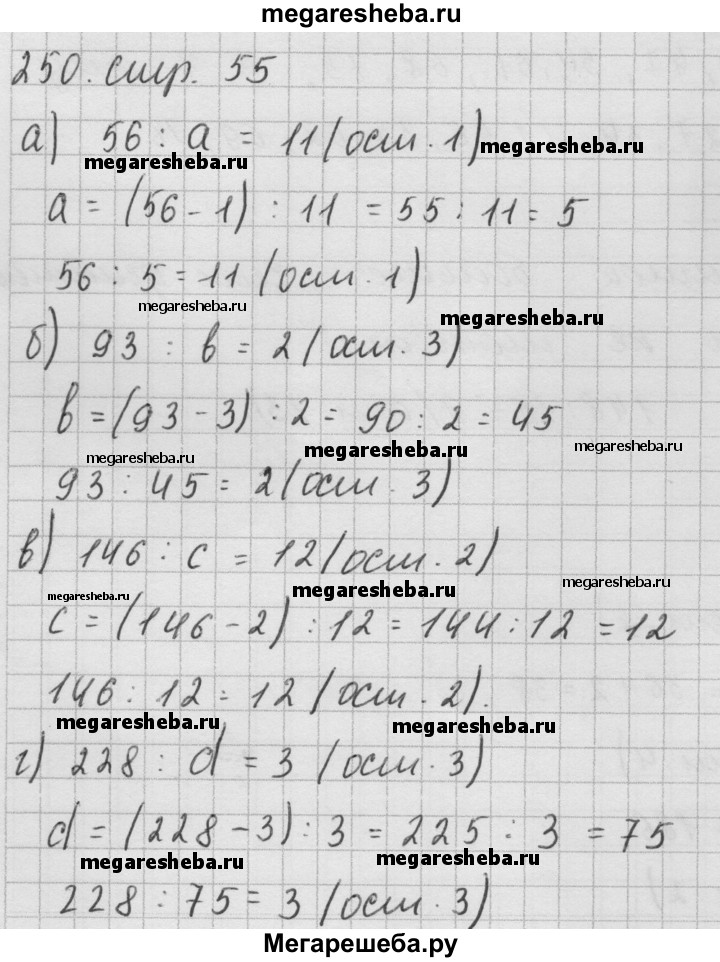 megaresheba.ru
250. стр. 55
а) 56 : a = 11 (ост. 1)
megaresheba.ru
megaresheba.ru
a = (56 - 1) : 11 = 55 : 11 = 5
56 : 5 = 11 (ост. 1)
megaresheba.ru
megaresheba.ru
б) 93 : в = 2 (ост. 3)
в = (93 - 3) : 2 = 90 : 2 = 45
megaresheba.ru
megaresheba.ru
megaresheba.ru
93 : 45 = 2 (ост. 3)
в) 146 : c = 12 (ост. 2)
megaresheba.ru
megaresheba.ru
megaresheba.ru
c = (146 - 2) : 12 = 144 : 12 = 12
146 : 12 = 12 (ост. 2).
megaresheba.ru
megaresheba.ru
г) 228 : d = 3 (ост. 3)
d = (228 - 3) : 3 = 225 : 3 = 75
megaresheba.ru
megaresheba.ru
228 : 75 = 3 (ост. 3)
Мегарешеба.ру